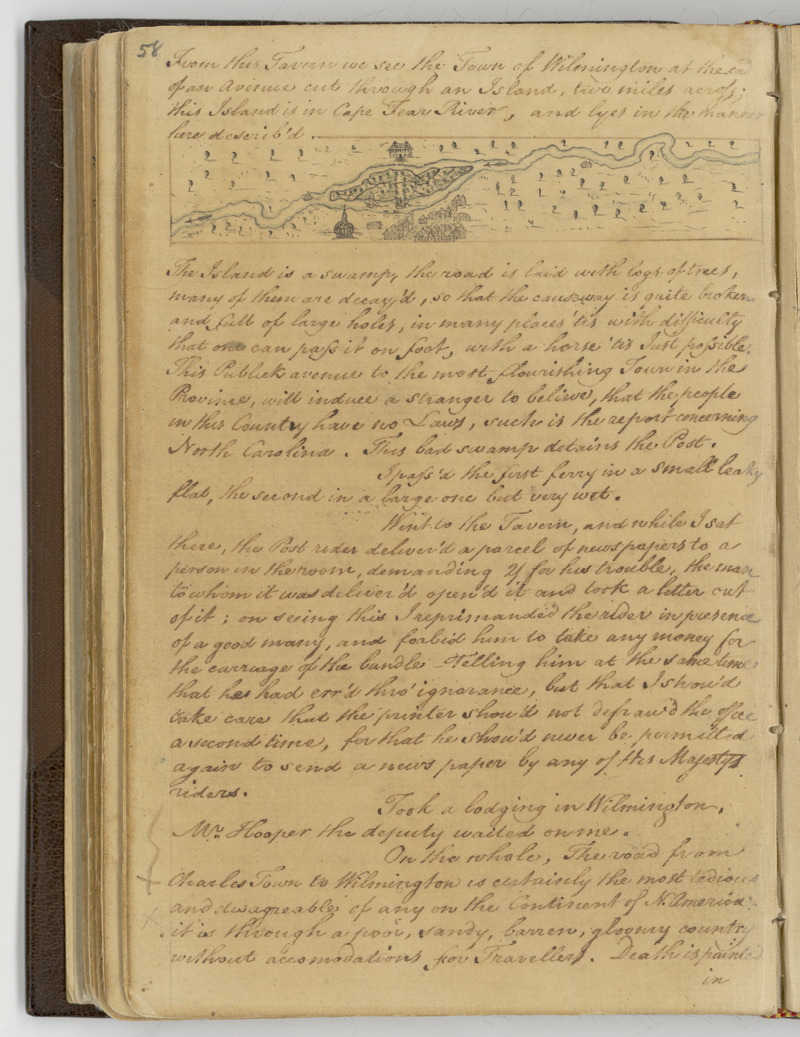 58
From this Tavern we see the Town of Wilmington at the end
of an Avenue cut through an Island, two miles across;
this Island is in Cape Fear River, and lyes in the manner
here describ'd.
The Island is a swamp, the road is laid with logs of trees,
many of them are decay'd, so that the causeway is quite broken
and full of large holes, in many places 'tis with difficulty
that one can pass it on foot, with a horse 'tis Just possible.
This Publick avenue to the most flourishing Town in the
Province, will induce a stranger to believe, that the people
in this Country have no Laws, such is the report concerning
North Carolina. This bad swamp detains the Post.
I pass'd the first ferry in a small leaky
flat, the second in a large one but very wet.
Went to the Tavern, and while I sat
there, the Post rider deliver'd a parcel of newspapers to a
person in the room, demanding 2/ for his trouble, the man
to whom it was deliver'd open'd it and took a letter out
of it; on seeing this I reprimanded the rider in presence
of a good many, and forbid him to take any money for
the carriage of the bundle - Telling him at the same time
that he had err'd thro' ignorance, but that I shou'd
take care that the printer shou'd not defraud the office
a second time, for that he shou'd never be permitted
again to send a news paper by any of His Majestys
riders.
Took a lodging in Wilmington,
Mr. Hooper the deputy waited on me.
On the whole, The road from
Charles Town to Wilmington is certainly the most tedious
and disagreable of any on the Continent of N. America
it is through a poor, sandy, barren, gloomy country
without accomodations for Travellers. Death is painted
in